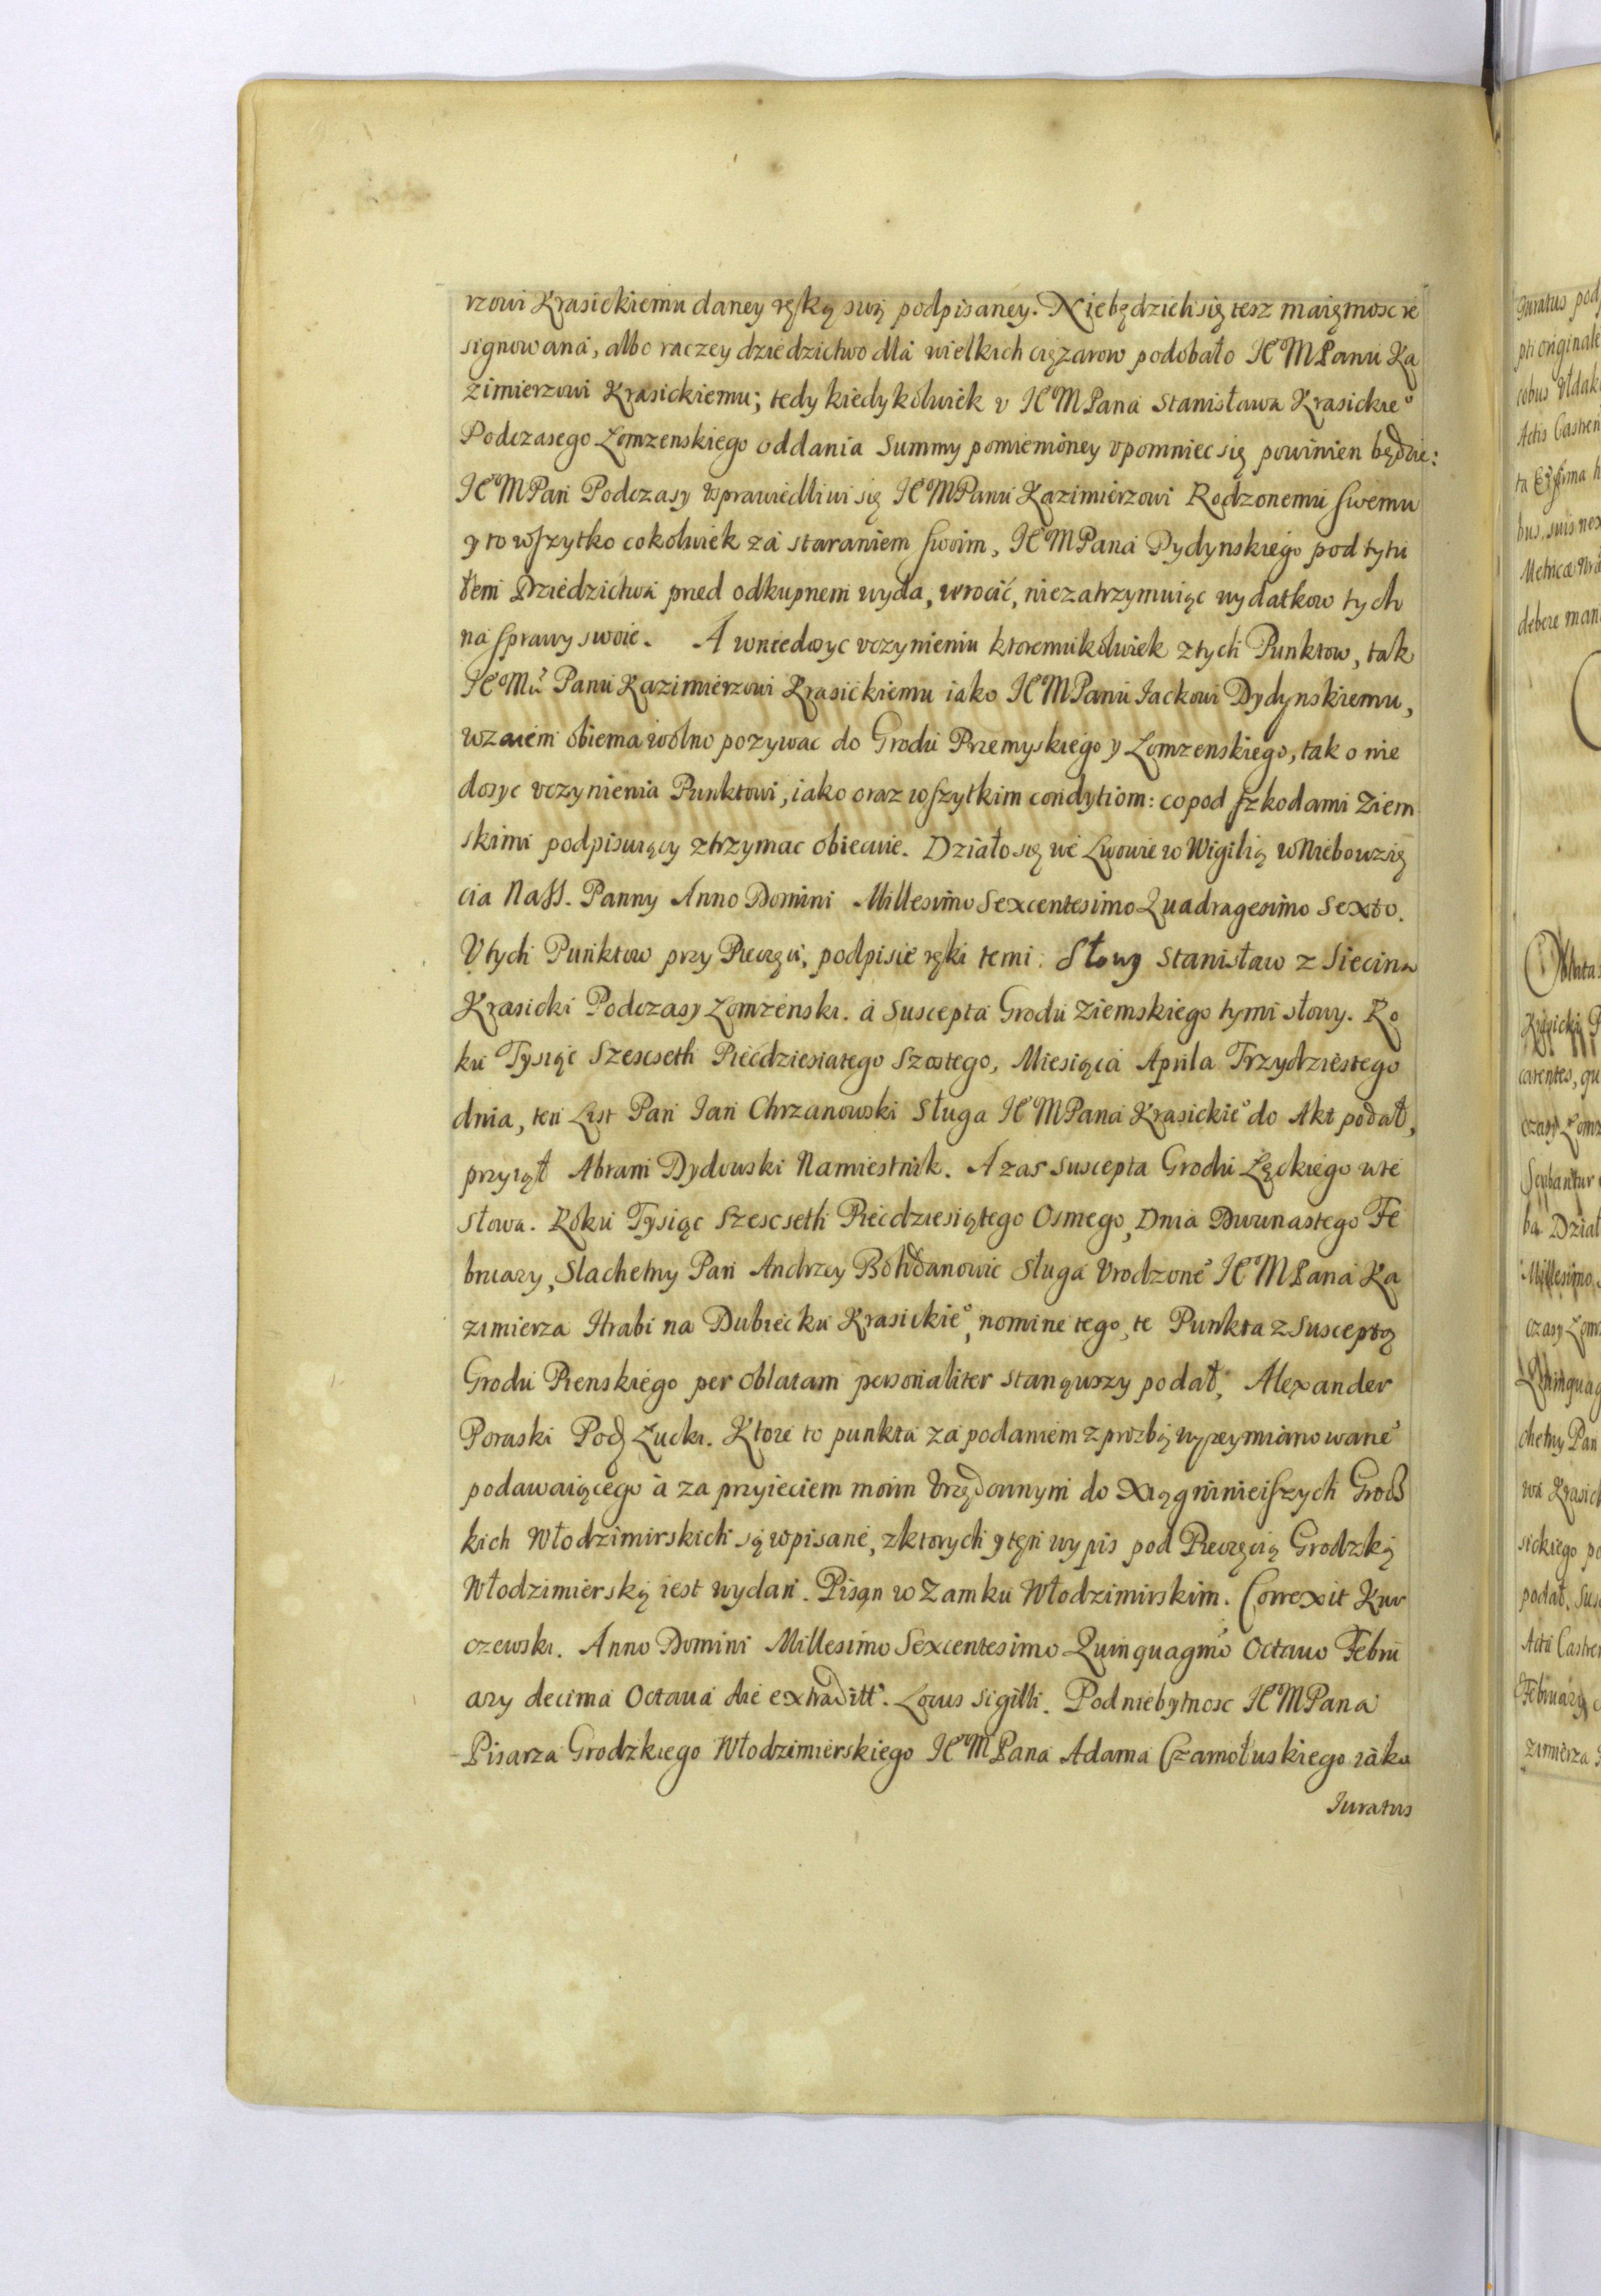 rzowi Krasickiemu daney ręką swą podpisaney. Niebędzieli się tesz maiętnosc re
signowana, albo raczey dziedzictwo dla wielkich ciązarow podobało IeM Panu Ka
zimierzowi Krasickiemu; tedy kiedykolwiek v IeM Pana Stanisława Krasickie°
Podczasego Łomzenskiego oddania Summy pomienioney vpomniec się powinien będzie:
IeM Pan Podczasy vsprawiedliwi się IeM Panu Kazimierzowi Rodzonemu swemu
y to wszytko cokolwiek za staraniem swoim, IeM Pana Dydynskiego pod tytu
łem Dziedzictwa pned odkupnem wyda, wrocić, niezatrzymuiąc wydatkow tych
na sprawy swoie. A wniedosyc vczynieniu ktoremukolwiek z tych Punktow, tak
IeMu Panu Kazimierzowi Krasickiemu iako IeM Panu Iackowi Dydynskiemu,
wzaiem obiema wolno pozywac do Grodu Przemyskiego y Łomzenskiego, tak o nie
dosyc vczynienia Punktowi, iako oraz wszytkim condytiom: co pod szkodami Ziem
skimi podpisuiący ztrzymac obiecuie. Działo się we Lwowie w Wigilią wNiebowzię
cia Nass. Panny Anno Domini Millesimo Sexcentesimo Quadragesimo Sexto.
V tych Punktow przy Pieczęci, podpisie ręki temi. Słowy Stanisław z Siecina
Krasicki Podczasy Łomzenski. a Suscepta Grodu Ziemskiego tymi słowy. Ro
ku Tysiąc Szescseth Piećdziesiatego Szostego, Miesiąca Aprila Trzydziestego
dnia, ten List Pan Ian Chrzanowski Sługa IeM Pana Krasickie° do Akt podał,
przyiął Abram Dydowski Namiestnik. A zas suscepta Grodu Łęckiego w te
Słowa. Roku Tysiąc Szescseth Piećdziesiątego Osmego, Dnia Dwunastego Fe
bruary, Slachetny Pan Andrzey Bohdanowic Sługa Vrodzone° IeM Pana Ka
zimierza Hrabi na Dubiecku Krasickie°, nomine tego, te Punkta z Susceptą
Grodu Pienskiego per oblatam personaliter stanąwszy podał, Alexander
Poraski Podź Łucki. Ktore to punkta za podaniem z prozbą wyzeymianowane°
podawaiącego a za przyieciem moim Vrzędownym do Xiąg ninieiszych Grodź
kich Włodzimirskich są wpisane, z ktorych y ten wypis pod Pieczęcią Grodzką
Włodzimierską iest wydan. Pisan w Zamku Włodzimirskim. Correxit Kur
czewski. Anno Domini Millesimo Sexcentesimo Quinquagmo Octauo Febru
ary decima Octaua die extraditt. Locus Sigilli. Pod niebytnosc IeM Pana
Pisarza Grodzkiego Włodzimierskiego IeM Pana Adama Czamołuskiego iako
Iuratus